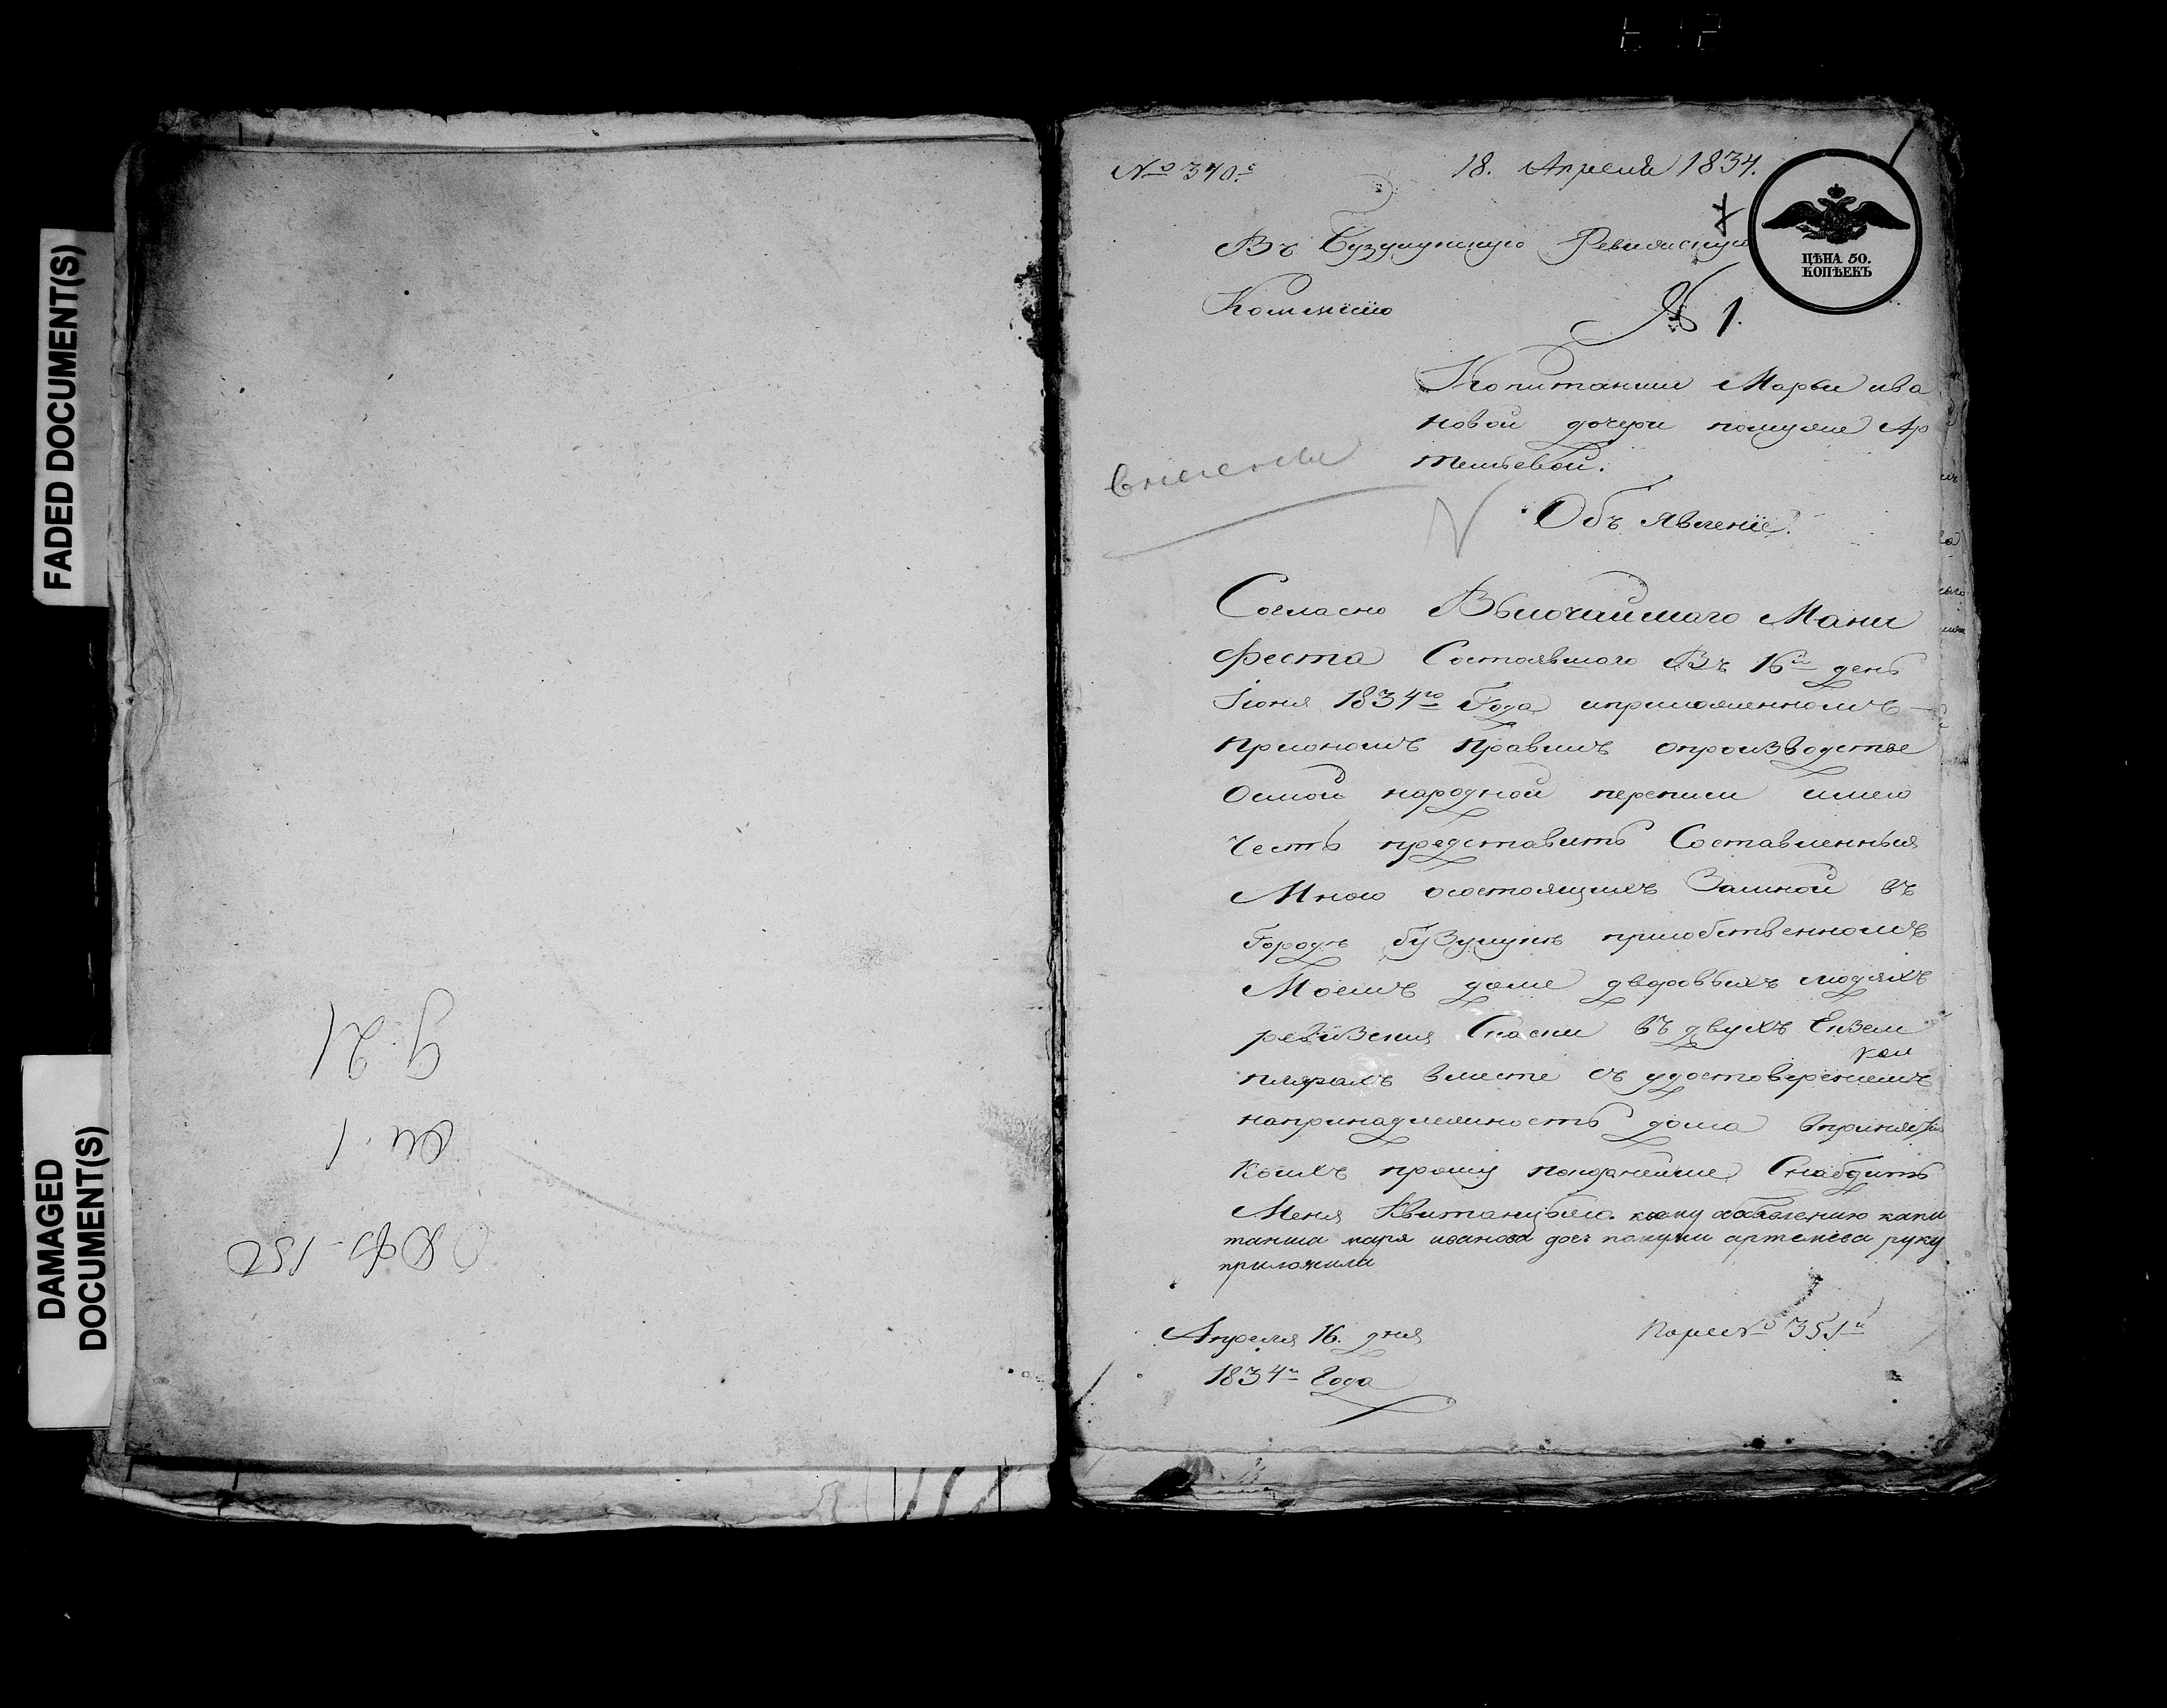 FADED DOCUMENT(S)
DAMAGED
DOCUMENT(S)
д. 21
оп. 1
ОДФ-150
№ 370.е
18. Апреля 1834.
ЦѢНА 50.
КОПѢЕКЪ
Въ Бузулукскую Ревизскую
Комисию
№ 1.
Капитанши Марьи ива
новой дочери помужѣ Ар
темьевой.
внесены
Объ явленіе.
Согласно Высочайшаго Мани
феста Состоявшаго Въ 16й день
Іюня 1834го Года иприложенномъ
приономъ правилъ опроизводстве
Осмой народной переписи имею
честь представить Составленныя
Мною осостоящихъ Замной въ
Городѣ бузулукѣ присобственномъ
Моемъ доме дворовыхъ людяхъ
ревизския Скаски въ двухъ Екзем
плярахъ вместе съ удостовереніемъ
напринадлежность дома впринятіи
коихъ прошу покорнейше Снабдить
Меня Квитанцыею. ксему объявлению капи
танша маря иванова доч помужи артемева руку
приложила
Апреля 16. дня
1834го Года